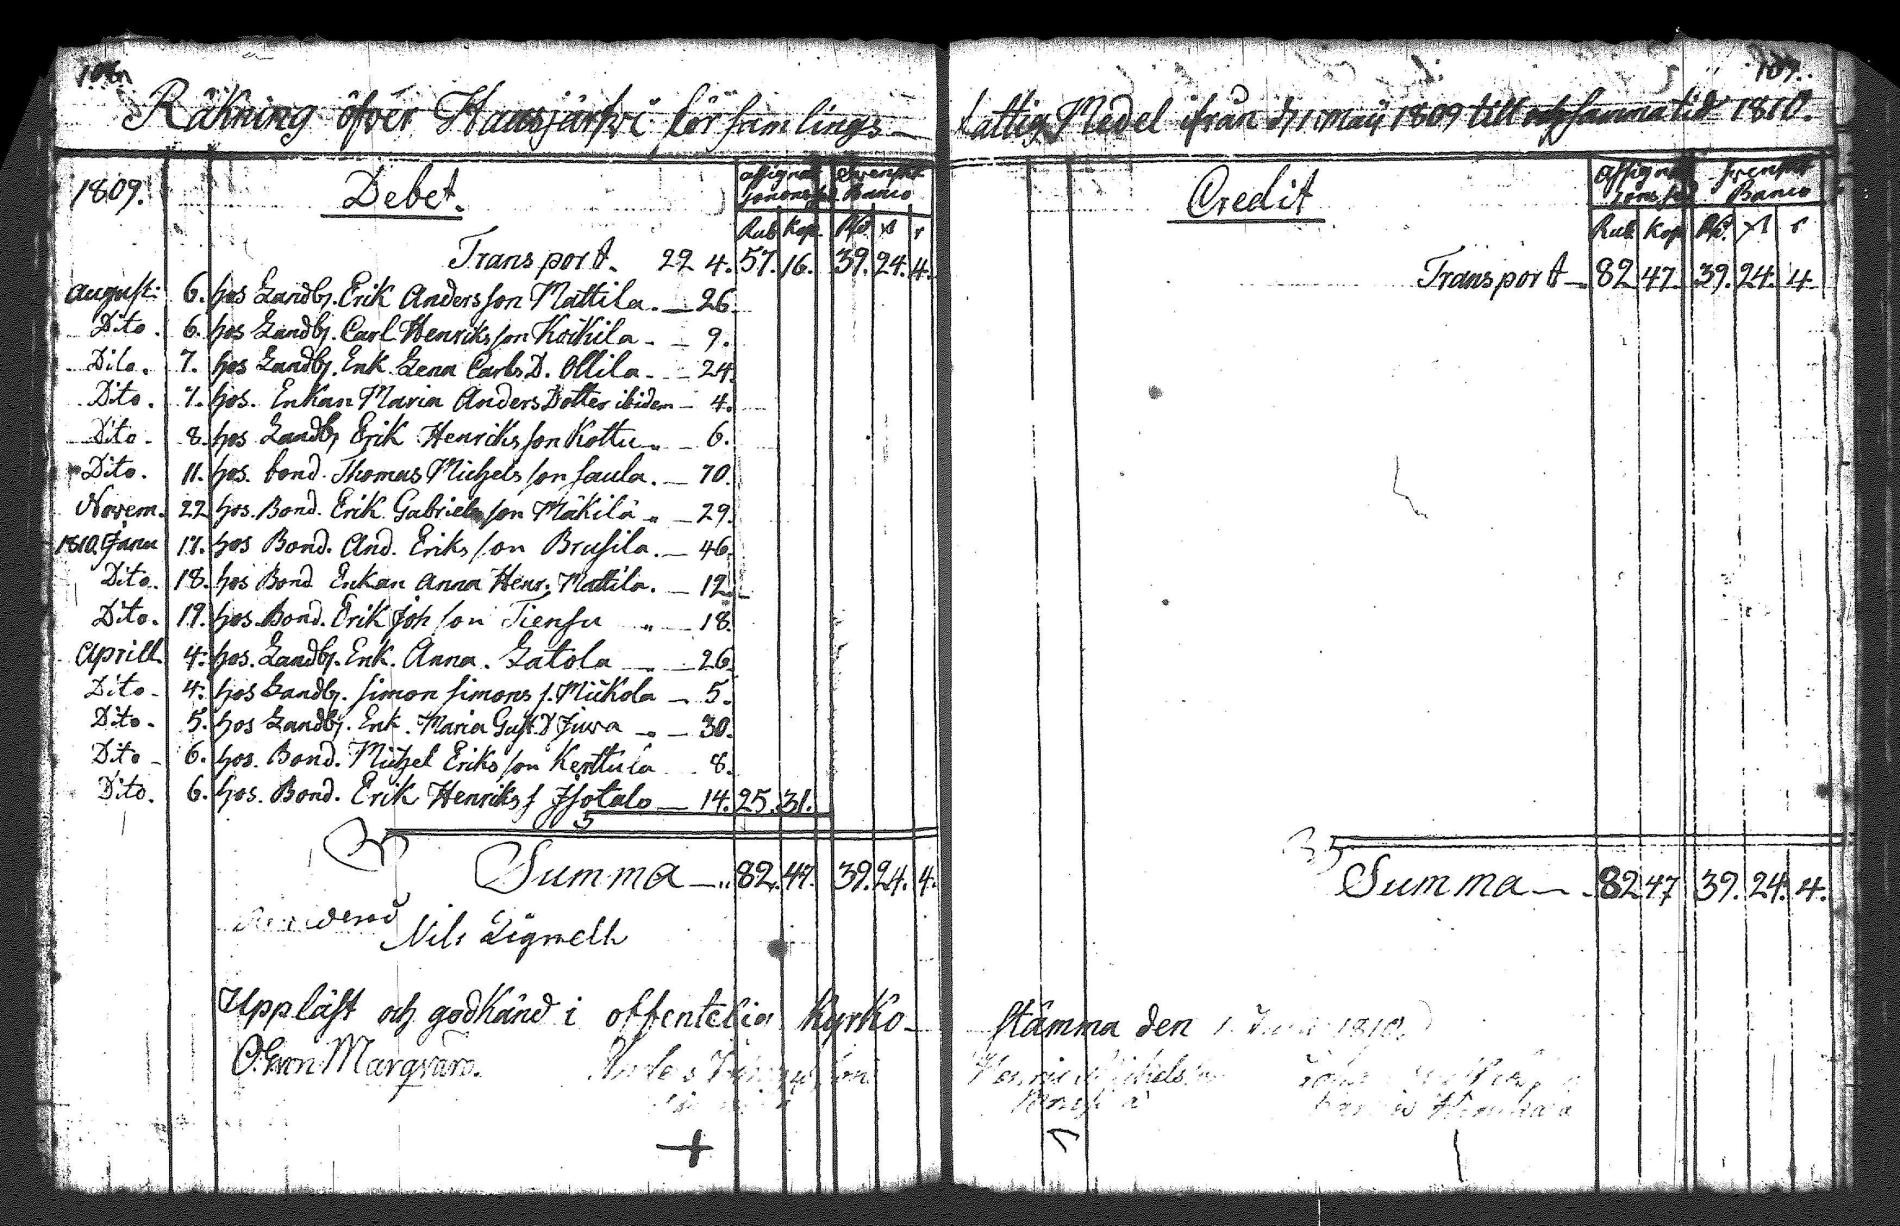 Räkning öfver Hausjärfvi församlings-
fattig Medel ifrån d 1 Maij 1809 till samma tid 1810.
107.
1809. Debet.
assignat. Svenskt
Banco
Rub Kop Rd ß r
Transport. 22 4. 57. 16. 39. 24. 4.
August: 6. hos Landb. Erik Andersson Mattila. — 26.
Dito. 6. hos Landb. Carl Henriksson Koikila - - 9.
Dito. 7. hos Landb. Enk. Lena Carls D. Ollila. - 24.
Dito. 7. hos. Enkan Maria Anders Dotter ibidem - 4.
Dito. 8. hos Landb Erik Henriksson Kottu - 6.
Dito. 11. hos. bond. Thomas Michelsson Saula. — 70.
Novem. 22 hos. Bond. Erik Gabrielsson Mäkilä „ — 29.
1810. Janu 17. hos Bond. And. Eriksson Brasila. — 46.
Dito. 18. hos Bond Enkan Anna Henr. Mattila. — 12.
Dito. 19. hos Bond. Erik Johsson Tiensu „ — 18.
Aprill. 4. hos. Landb. Enk. Anna. Latola — 26.
Dito - 4. hos Landb. Simon Simons s. Mickola — 5.
Dito. 5. hos Landb. Enk. Maria Gust. D Juva „ — 30.
Dito - 6. hos. Bond. Michel Eriksson Kerttula 8.
Dito. 6. hos. Bond. Erik Henriks s Isotalo — 14. 25. 31.
Summa — 82. 47. 39. 24. 4.
Nils Lignell
Uppläst och godkänd i offentelig Kyrko-
O. Margvard.
Credit
assignat Svenskt
Banco
Rub Kop Rd ß r
Transport — 82 47. 39. 24. 4
Summa — 82 47 39. 24. 4.
stämma den 1 1810.
Henric Michelsson